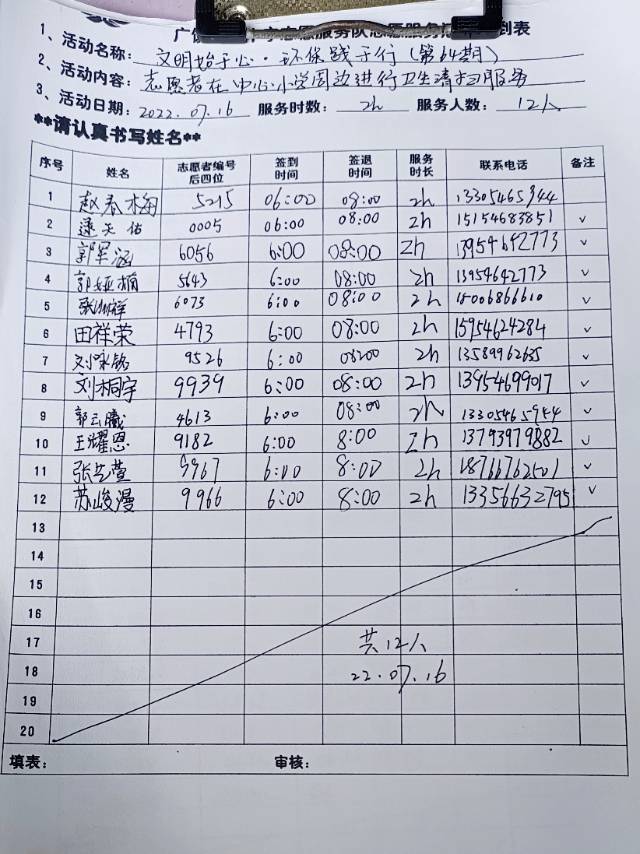 志愿服务队志愿服务活动签到表
1、活动名称： 文明始于心·环保践于行（第64期）
2、活动内容： 志愿者在中心小学周边进行卫生清扫服务
3、活动日期： 2022.07.16 服务时数： 2h 服务人数： 12人
**请认真书写姓名**
序号 姓名 志愿者编号后四位 签到时间 签退时间 服务时长 联系电话 备注
1 赵春梅 5215 06:00 08:00 2h 13305465944
2 天佑 0005 06:00 08:00 2h 15154683851 ✓
3 郭军涵 6056 6:00 08:00 2h 13954642773 ✓
4 郭娅楠 5643 6:00 08:00 2h 13954642773 ✓
5 张 祥 6073 6:00 08:00 2h 15006866610 ✓
6 田祥荣 4793 6:00 08:00 2h 15954624284 ✓
7 刘咏铭 9526 6:00 08:00 2h 13589962635 ✓
8 刘桐宇 9939 6:00 08:00 2h 13954699017 ✓
9 郭云曦 4613 6:00 08:00 2h 13305465944 ✓
10 王耀恩 9182 6:00 8:00 2h 13793979882 ✓
11 张艺萱 9967 6:00 8:00 2h 18766762501 ✓
12 苏峻漫 9966 6:00 8:00 2h 13356632795 ✓
13
14
15
16
17 共12人
18 22.07.16
19
20
填表： 审核：